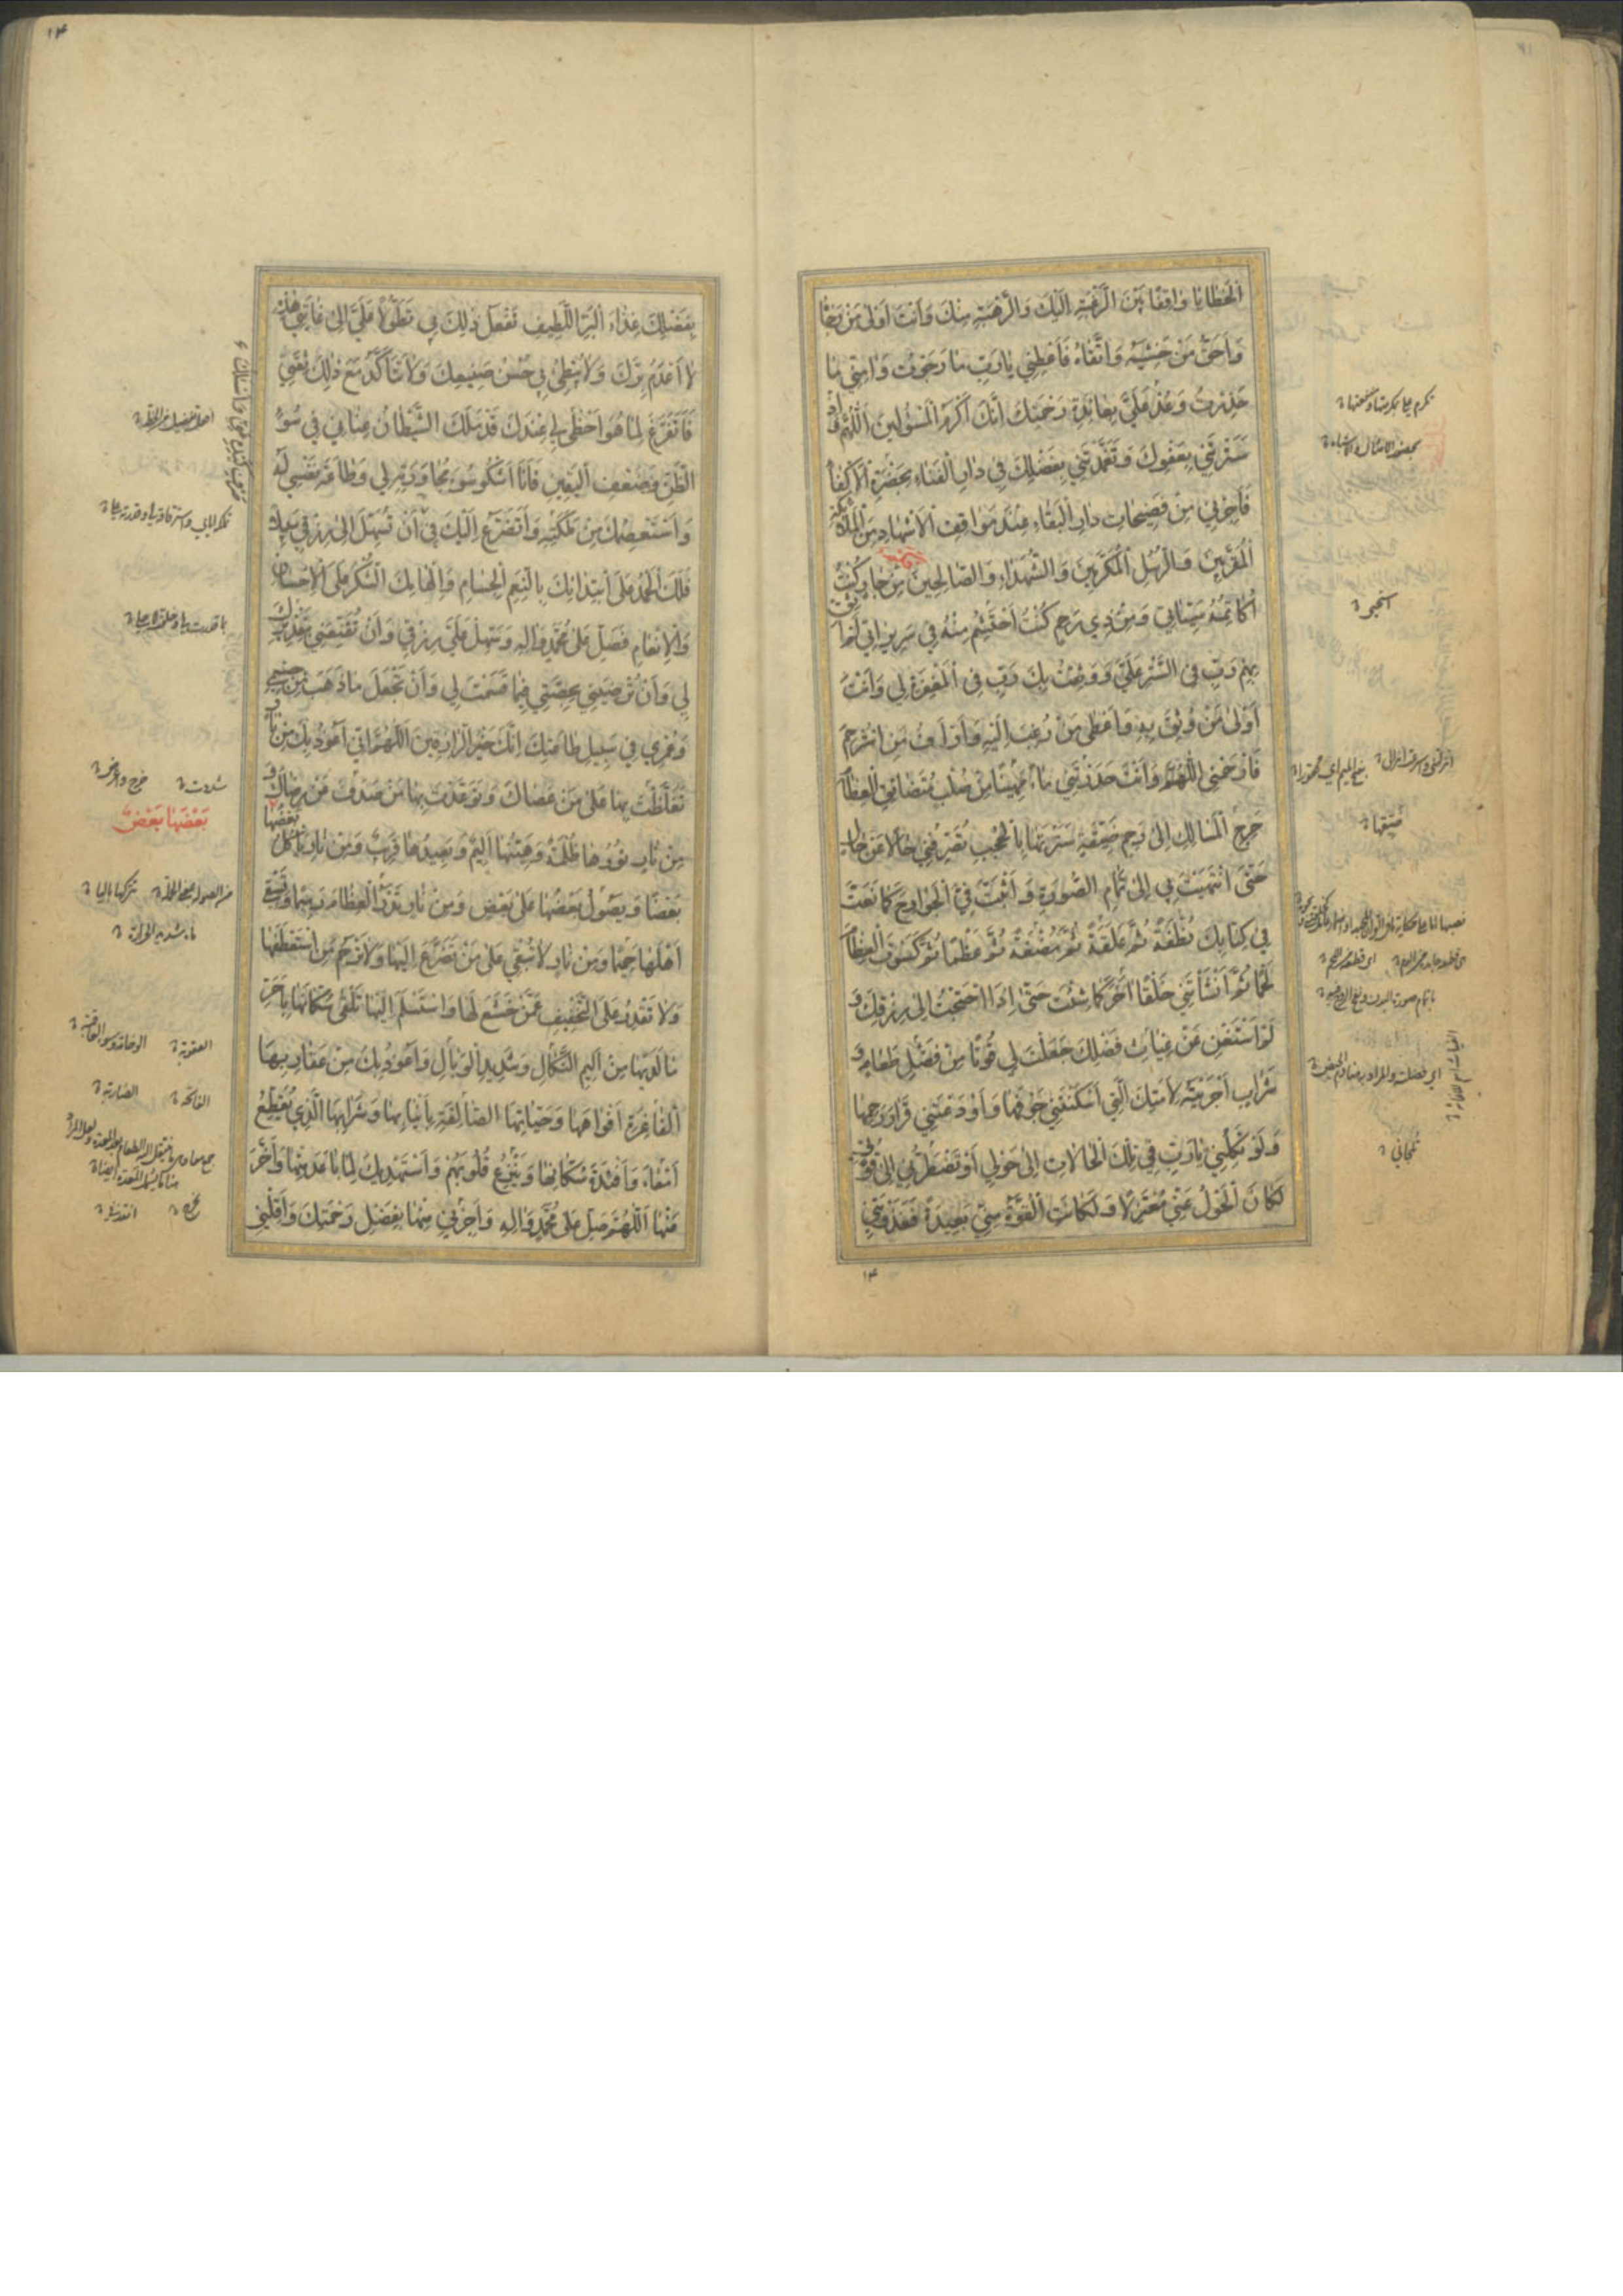 الْخَطَايَا وَاقِفًا بَيْنَ الرَّغْبَةِ اِلَيْكَ وَالرَّهْبَةِ مِنْكَ وَاَنْتَ اَوْلٰى مَنْ رَجَاهُ
وَاَحَقُّ مَنْ خَشِيَهُ وَاتَّقَاهُ فَاَعْطِنِي يَا رَبِّ مَا رَجَوْتُ وَاٰمِنِّي مَا
حَذِرْتُ وَعُدْ عَلَيَّ بِعَائِدَةِ رَحْمَتِكَ اِنَّكَ اَكْرَمُ الْمَسْئُولِينَ اَللّٰهُمَّ وَاِذْ
سَتَرْتَنِي بِعَفْوِكَ وَتَغَمَّدْتَنِي بِفَضْلِكَ فِي دَارِ الْفَنَاءِ بِحَضْرَةِ الْاَكْفَاءِ
فَاَجِرْنِي مِنْ فَضِيحَاتِ دَارِ الْبَقَاءِ عِنْدَ مَوَاقِفِ الْاَشْهَادِ مِنَ الْمَلَائِكَةِ
الْمُقَرَّبِينَ وَالرُّسُلِ الْمُكَرَّمِينَ وَالشُّهَدَاءِ وَالصَّالِحِينَ مِنْ جَارٍ كُنْتُ
اُكَاتِمُهُ سَيِّئَاتِي وَمِنْ ذِي رَحِمٍ كُنْتُ اَحْتَشِمُ مِنْهُ فِي سَرِيرَاتِي لَمْ اَثِقْ
بِهِمْ رَبِّ فِي السِّتْرِ عَلَيَّ وَوَثِقْتُ بِكَ رَبِّ فِي الْمَغْفِرَةِ لِي وَاَنْتَ
اَوْلٰى مَنْ وُثِقَ بِهِ وَاَعْطٰى مَنْ رُغِبَ اِلَيْهِ وَاَرْاَفُ مَنِ اسْتُرْحِمَ
فَارْحَمْنِي اَللّٰهُمَّ وَاَنْتَ حَدَرْتَنِي مَاءً مَهِينًا مِنْ صُلْبٍ مُتَضَائِقِ الْعِظَامِ
حَرِجِ الْمَسَالِكِ اِلٰى رَحِمٍ ضَيِّقَةٍ سَتَرْتَهَا بِالْحُجُبِ تُصَرِّفُنِي حَالًا عَنْ حَالٍ
حَتَّى انْتَهَيْتَ بِي اِلٰى تَمَامِ الصُّورَةِ وَاَثْبَتَّ فِيَّ الْجَوَارِحَ كَمَا نَعَتَّ
فِي كِتَابِكَ نُطْفَةً ثُمَّ عَلَقَةً ثُمَّ مُضْغَةً ثُمَّ عَظْمًا ثُمَّ كَسَوْتَ الْعِظَامَ
لَحْمًا ثُمَّ اَنْشَاْتَنِي خَلْقًا اٰخَرَ كَمَا شِئْتَ حَتّٰى اِذَا احْتَجْتُ اِلٰى رِزْقِكَ وَ
لَمْ اَسْتَغْنِ عَنْ غِيَاثِ فَضْلِكَ جَعَلْتَ لِي قُوتًا مِنْ فَضْلِ طَعَامٍ وَ
شَرَابٍ اَجْرَيْتَهُ لِاَمَتِكَ الَّتِي اَسْكَنْتَنِي جَوْفَهَا وَاَوْدَعْتَنِي قَرَارَ رَحِمِهَا
وَلَوْ تَكِلُنِي يَا رَبِّ فِي تِلْكَ الْحَالَاتِ اِلٰى حَوْلِي اَوْ تَضْطَرُّنِي اِلٰى قُوَّتِي
لَكَانَ الْحَوْلُ عَنِّي مُعْتَزِلًا وَلَكَانَتِ الْقُوَّةُ مِنِّي بَعِيدَةً فَغَذَوْتَنِي
استحيي
ضيقها
۱۴
۱۴
بِفَضْلِكَ غِذَاءَ الْبَرِّ اللَّطِيفِ تَفْعَلُ ذٰلِكَ بِي تَطَوُّلًا عَلَيَّ اِلٰى غَايَتِي هٰذِهِ
لَا اَعْدَمُ بِرَّكَ وَلَا يُبْطِئُ بِي حُسْنُ صَنِيعِكَ وَلَا تَتَاَكَّدُ مَعَ ذٰلِكَ ثِقَتِي
فَاَتَفَرَّغَ لِمَا هُوَ اَحْظٰى لِي عِنْدَكَ قَدْ مَلَكَ الشَّيْطَانُ عِنَانِي فِي سُوءِ
الظَّنِّ وَضَعْفِ الْيَقِينِ فَاَنَا اَشْكُو سُوءَ مُجَاوَرَتِهِ لِي وَطَاعَةَ نَفْسِي لَهُ
وَاَسْتَعْصِمُكَ مِنْ مَلَكَتِهِ وَاَتَضَرَّعُ اِلَيْكَ فِي اَنْ تُسَهِّلَ اِلٰى رِزْقِي سَبِيلًا
فَلَكَ الْحَمْدُ عَلَى ابْتِدَائِكَ بِالنِّعَمِ الْجِسَامِ وَاِلْهَامِكَ الشُّكْرَ عَلَى الْاِحْسَانِ
وَالْاِنْعَامِ فَصَلِّ عَلٰى مُحَمَّدٍ وَاٰلِهِ وَسَهِّلْ عَلَيَّ رِزْقِي وَاَنْ تُقَنِّعَنِي بِتَقْدِيرِكَ
لِي وَاَنْ تُرْضِيَنِي بِحِصَّتِي فِيمَا قَسَمْتَ لِي وَاَنْ تَجْعَلَ مَا ذَهَبَ مِنْ جِسْمِي
وَعُمْرِي فِي سَبِيلِ طَاعَتِكَ اِنَّكَ خَيْرُ الرَّازِقِينَ اَللّٰهُمَّ اِنِّي اَعُوذُ بِكَ مِنْ نَارٍ
تَغَلَّظْتَ بِهَا عَلٰى مَنْ عَصَاكَ وَتَوَعَّدْتَ بِهَا مَنْ صَدَفَ عَنْ رِضَاكَ وَ
مِنْ نَارٍ نُورُهَا ظُلْمَةٌ وَهَيِّنُهَا اَلِيمٌ وَبَعِيدُهَا قَرِيبٌ وَمِنْ نَارٍ يَاْكُلُ بَعْضُهَا
بَعْضًا وَيَصُولُ بَعْضُهَا عَلٰى بَعْضٍ وَمِنْ نَارٍ تَذَرُ الْعِظَامَ رَمِيمًا وَتَسْقِي
اَهْلَهَا حَمِيمًا وَمِنْ نَارٍ لَا تُبْقِي عَلٰى مَنْ تَضَرَّعَ اِلَيْهَا وَلَا تَرْحَمُ مَنِ اسْتَعْطَفَهَا
وَلَا تَقْدِرُ عَلَى التَّخْفِيفِ عَمَّنْ خَشَعَ لَهَا وَاسْتَسْلَمَ اِلَيْهَا تَلْقٰى سُكَّانَهَا بِاَحَرِّ
مَا لَدَيْهَا مِنْ اَلِيمِ النَّكَالِ وَشَدِيدِ الْوَبَالِ وَاَعُوذُ بِكَ مِنْ عَقَارِبِهَا
الْفَاغِرَةِ اَفْوَاهَهَا وَحَيَّاتِهَا الصَّالِقَةِ بِاَنْيَابِهَا وَشَرَابِهَا الَّذِي يُقَطِّعُ
اَمْعَاءَ وَاَفْئِدَةَ سُكَّانِهَا وَيَنْزِعُ قُلُوبَهُمْ وَاَسْتَهْدِيكَ لِمَا بَاعَدَ مِنْهَا وَاَخَّرَ
عَنْهَا اَللّٰهُمَّ صَلِّ عَلٰى مُحَمَّدٍ وَاٰلِهِ وَاَجِرْنِي مِنْهَا بِفَضْلِ رَحْمَتِكَ وَاَقِلْنِي
شددت خرج واعرض
بَعْضَهَا بَعْضٌ
العقوبة
الفاتحة الضاربة